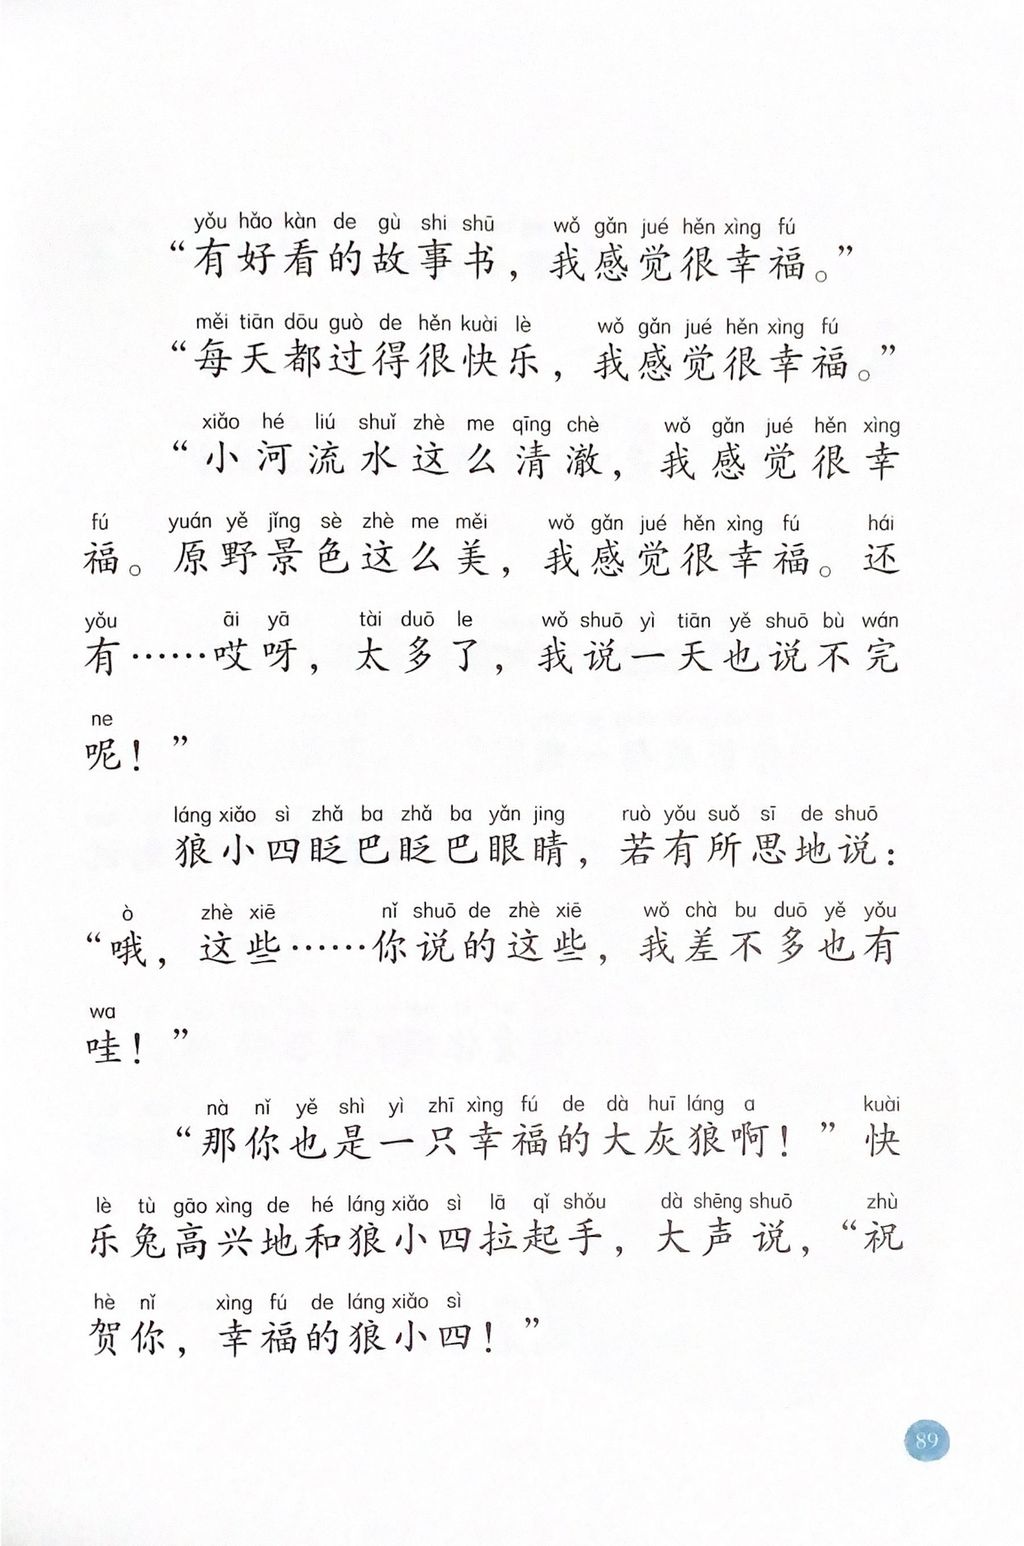 yǒu hǎo kàn de gù shi shū wǒ gǎn jué hěn xìng fú
“有好看的故事书，我感觉很幸福。”
měi tiān dōu guò de hěn kuài lè wǒ gǎn jué hěn xìng fú
“每天都过得很快乐，我感觉很幸福。”
xiǎo hé liú shuǐ zhè me qīng chè wǒ gǎn jué hěn xìng
“小河流水这么清澈，我感觉很幸
fú yuán yě jǐng sè zhè me měi wǒ gǎn jué hěn xìng fú hái
福。原野景色这么美，我感觉很幸福。还
yǒu āi yā tài duō le wǒ shuō yì tiān yě shuō bù wán
有……哎呀，太多了，我说一天也说不完
ne
呢！”
láng xiǎo sì zhǎ ba zhǎ ba yǎn jing ruò yǒu suǒ sī de shuō
狼小四眨巴眨巴眼睛，若有所思地说：
ò zhè xiē nǐ shuō de zhè xiē wǒ chà bu duō yě yǒu
“哦，这些……你说的这些，我差不多也有
wa
哇！”
nà nǐ yě shì yì zhī xìng fú de dà huī láng a kuài
“那你也是一只幸福的大灰狼啊！”快
lè tù gāo xìng de hé láng xiǎo sì lā qǐ shǒu dà shēng shuō zhù
乐兔高兴地和狼小四拉起手，大声说，“祝
hè nǐ xìng fú de láng xiǎo sì
贺你，幸福的狼小四！”
89